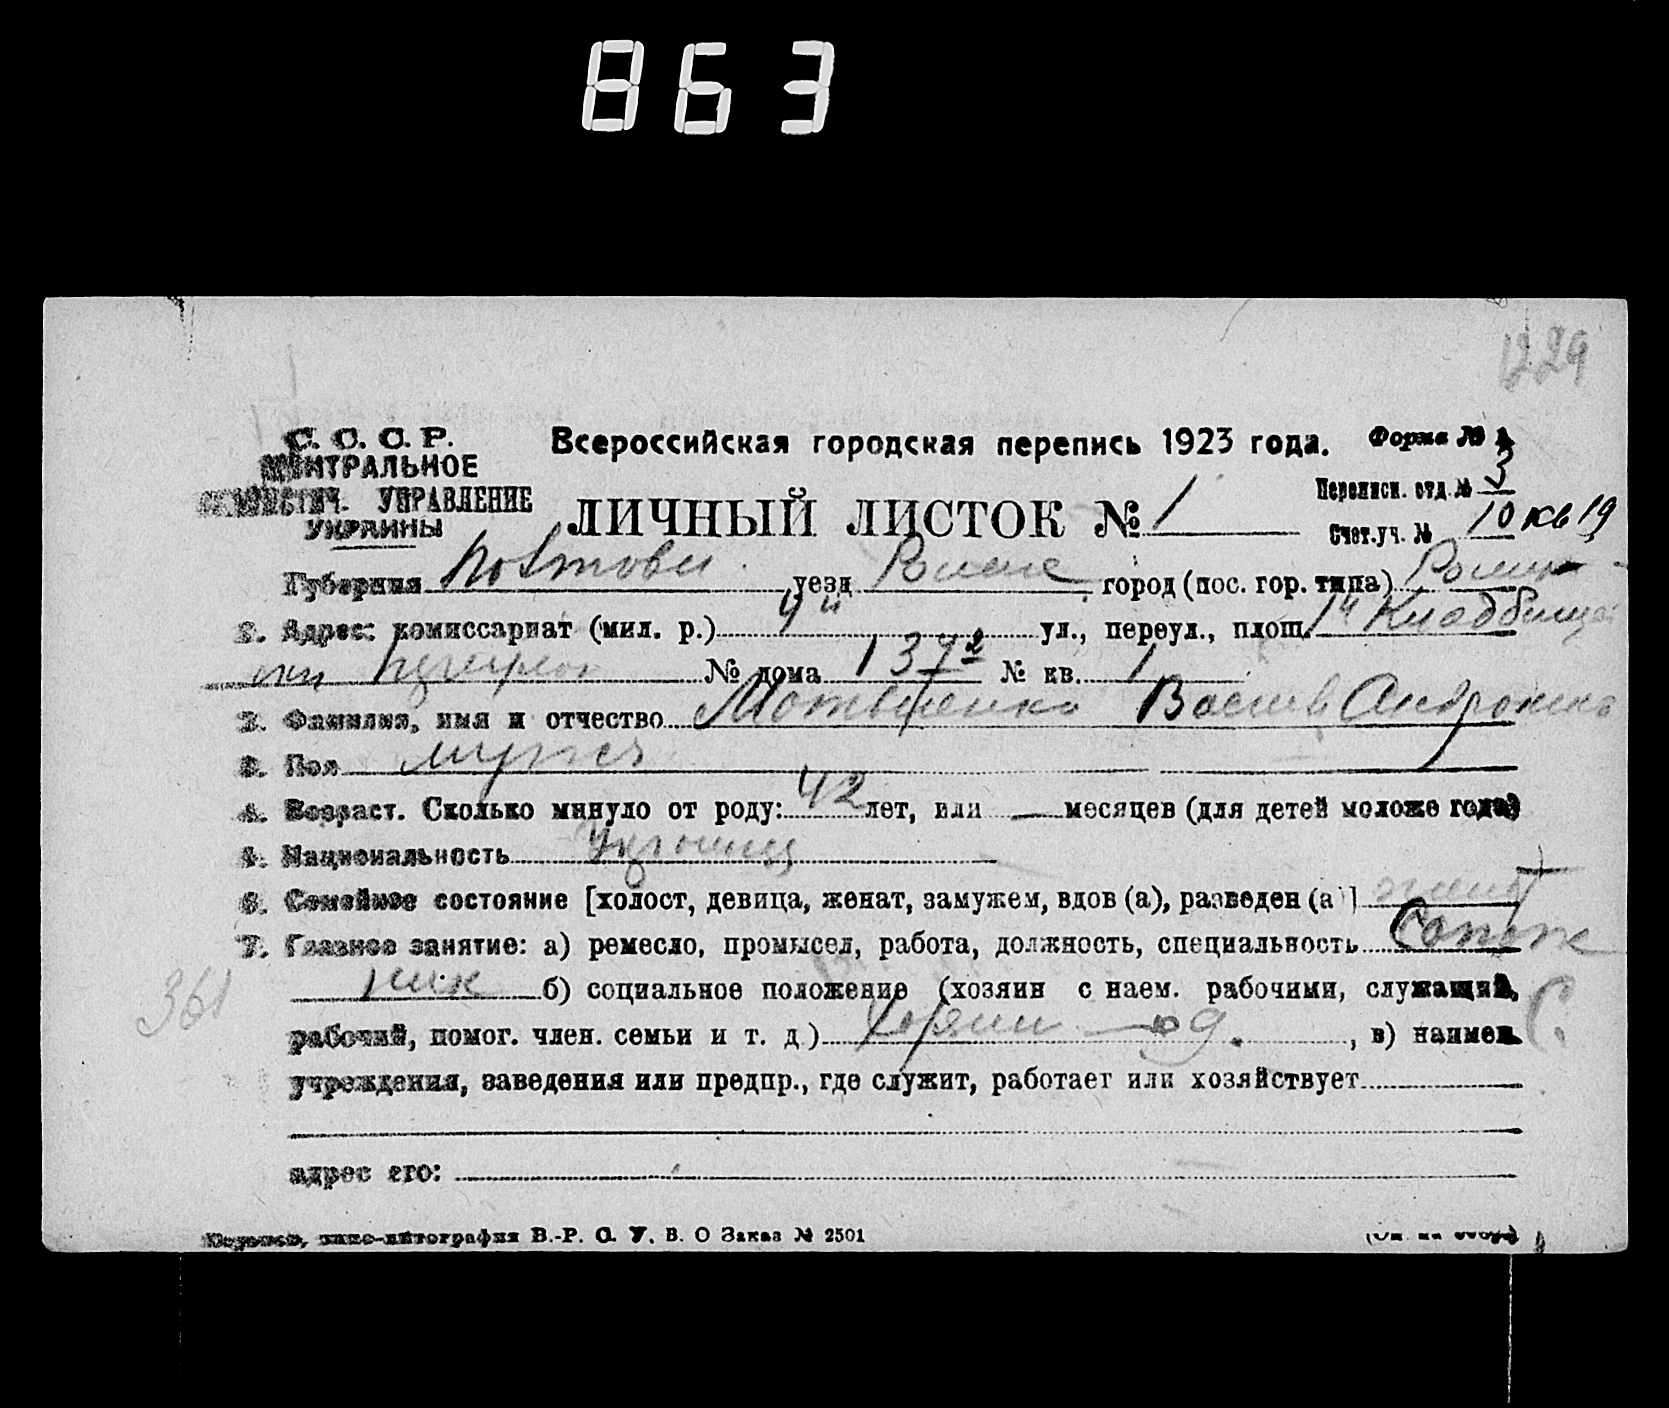 863
1229
С. С. С. Р.
ЦЕНТРАЛЬНОЕ
СТАТИСТИЧ. УПРАВЛЕНИЕ
УКРАИНЫ
Всероссийская городская перепись 1923 года.
Форма № 1
ЛИЧНЫЙ ЛИСТОК № 1
Переписн. отд. № 3
Счет. уч. № 10 кв 19
Губерния Полтови уезд город (пос. гор. типа)
2. Адрес: комиссариат (мил. р.) ул., переул., площ. Кладбищен
№ дома 137 № кв. 1
2. Фамилия, имя и отчество
3. Пол
4. Возраст. Сколько минуло от роду: 42 лет, или — месяцев (для детей моложе года)
Национальность Украинец
6. Семейное состояние [холост, девица, женат, замужем, вдов (а), разведен (а)] женат
7. Главное занятие: а) ремесло, промысел, работа, должность, специальность Сапож
361 ник б) социальное положение (хозяин с наем. рабочими, служащий,
рабочий, помог. член. семьи и т. д) Хозяин , в) наимен.
учреждения, заведения или предпр., где служит, работает или хозяйствует
адрес его:
В.-Р. С. У. В. О Заказ № 2501